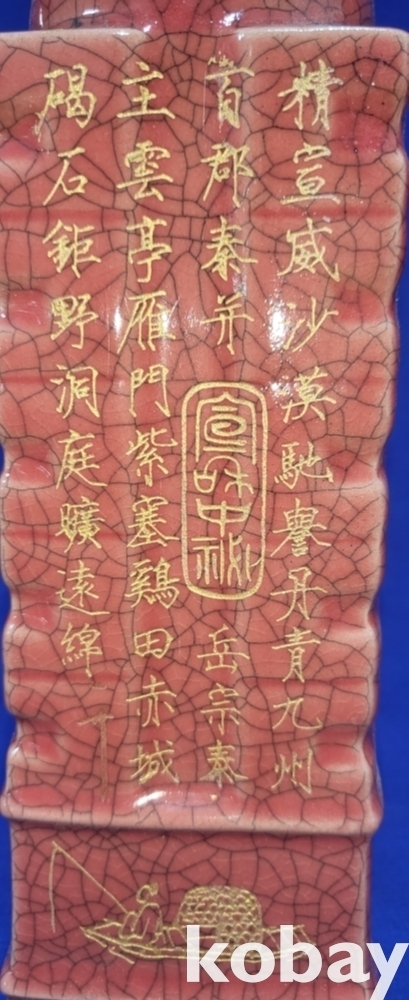 精宣威沙漠馳譽丹青九州
百郡秦并
宣和中秘
岳宗泰
主雲亭雁門紫塞鷄田赤城
碣石鉅野洞庭曠遠綿
kobay